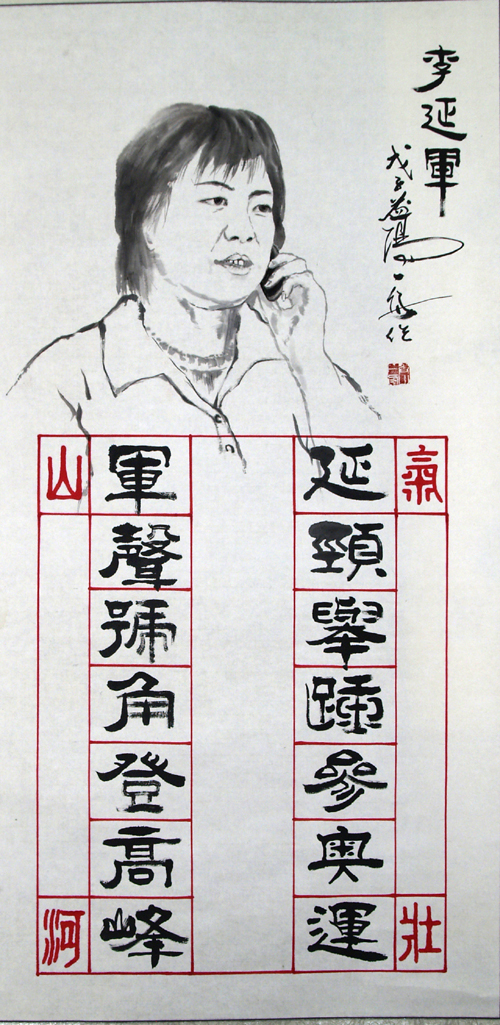 李延軍
戊子益陽
氣壯
延頸舉踵參奧運
軍聲號角登高峰
山河